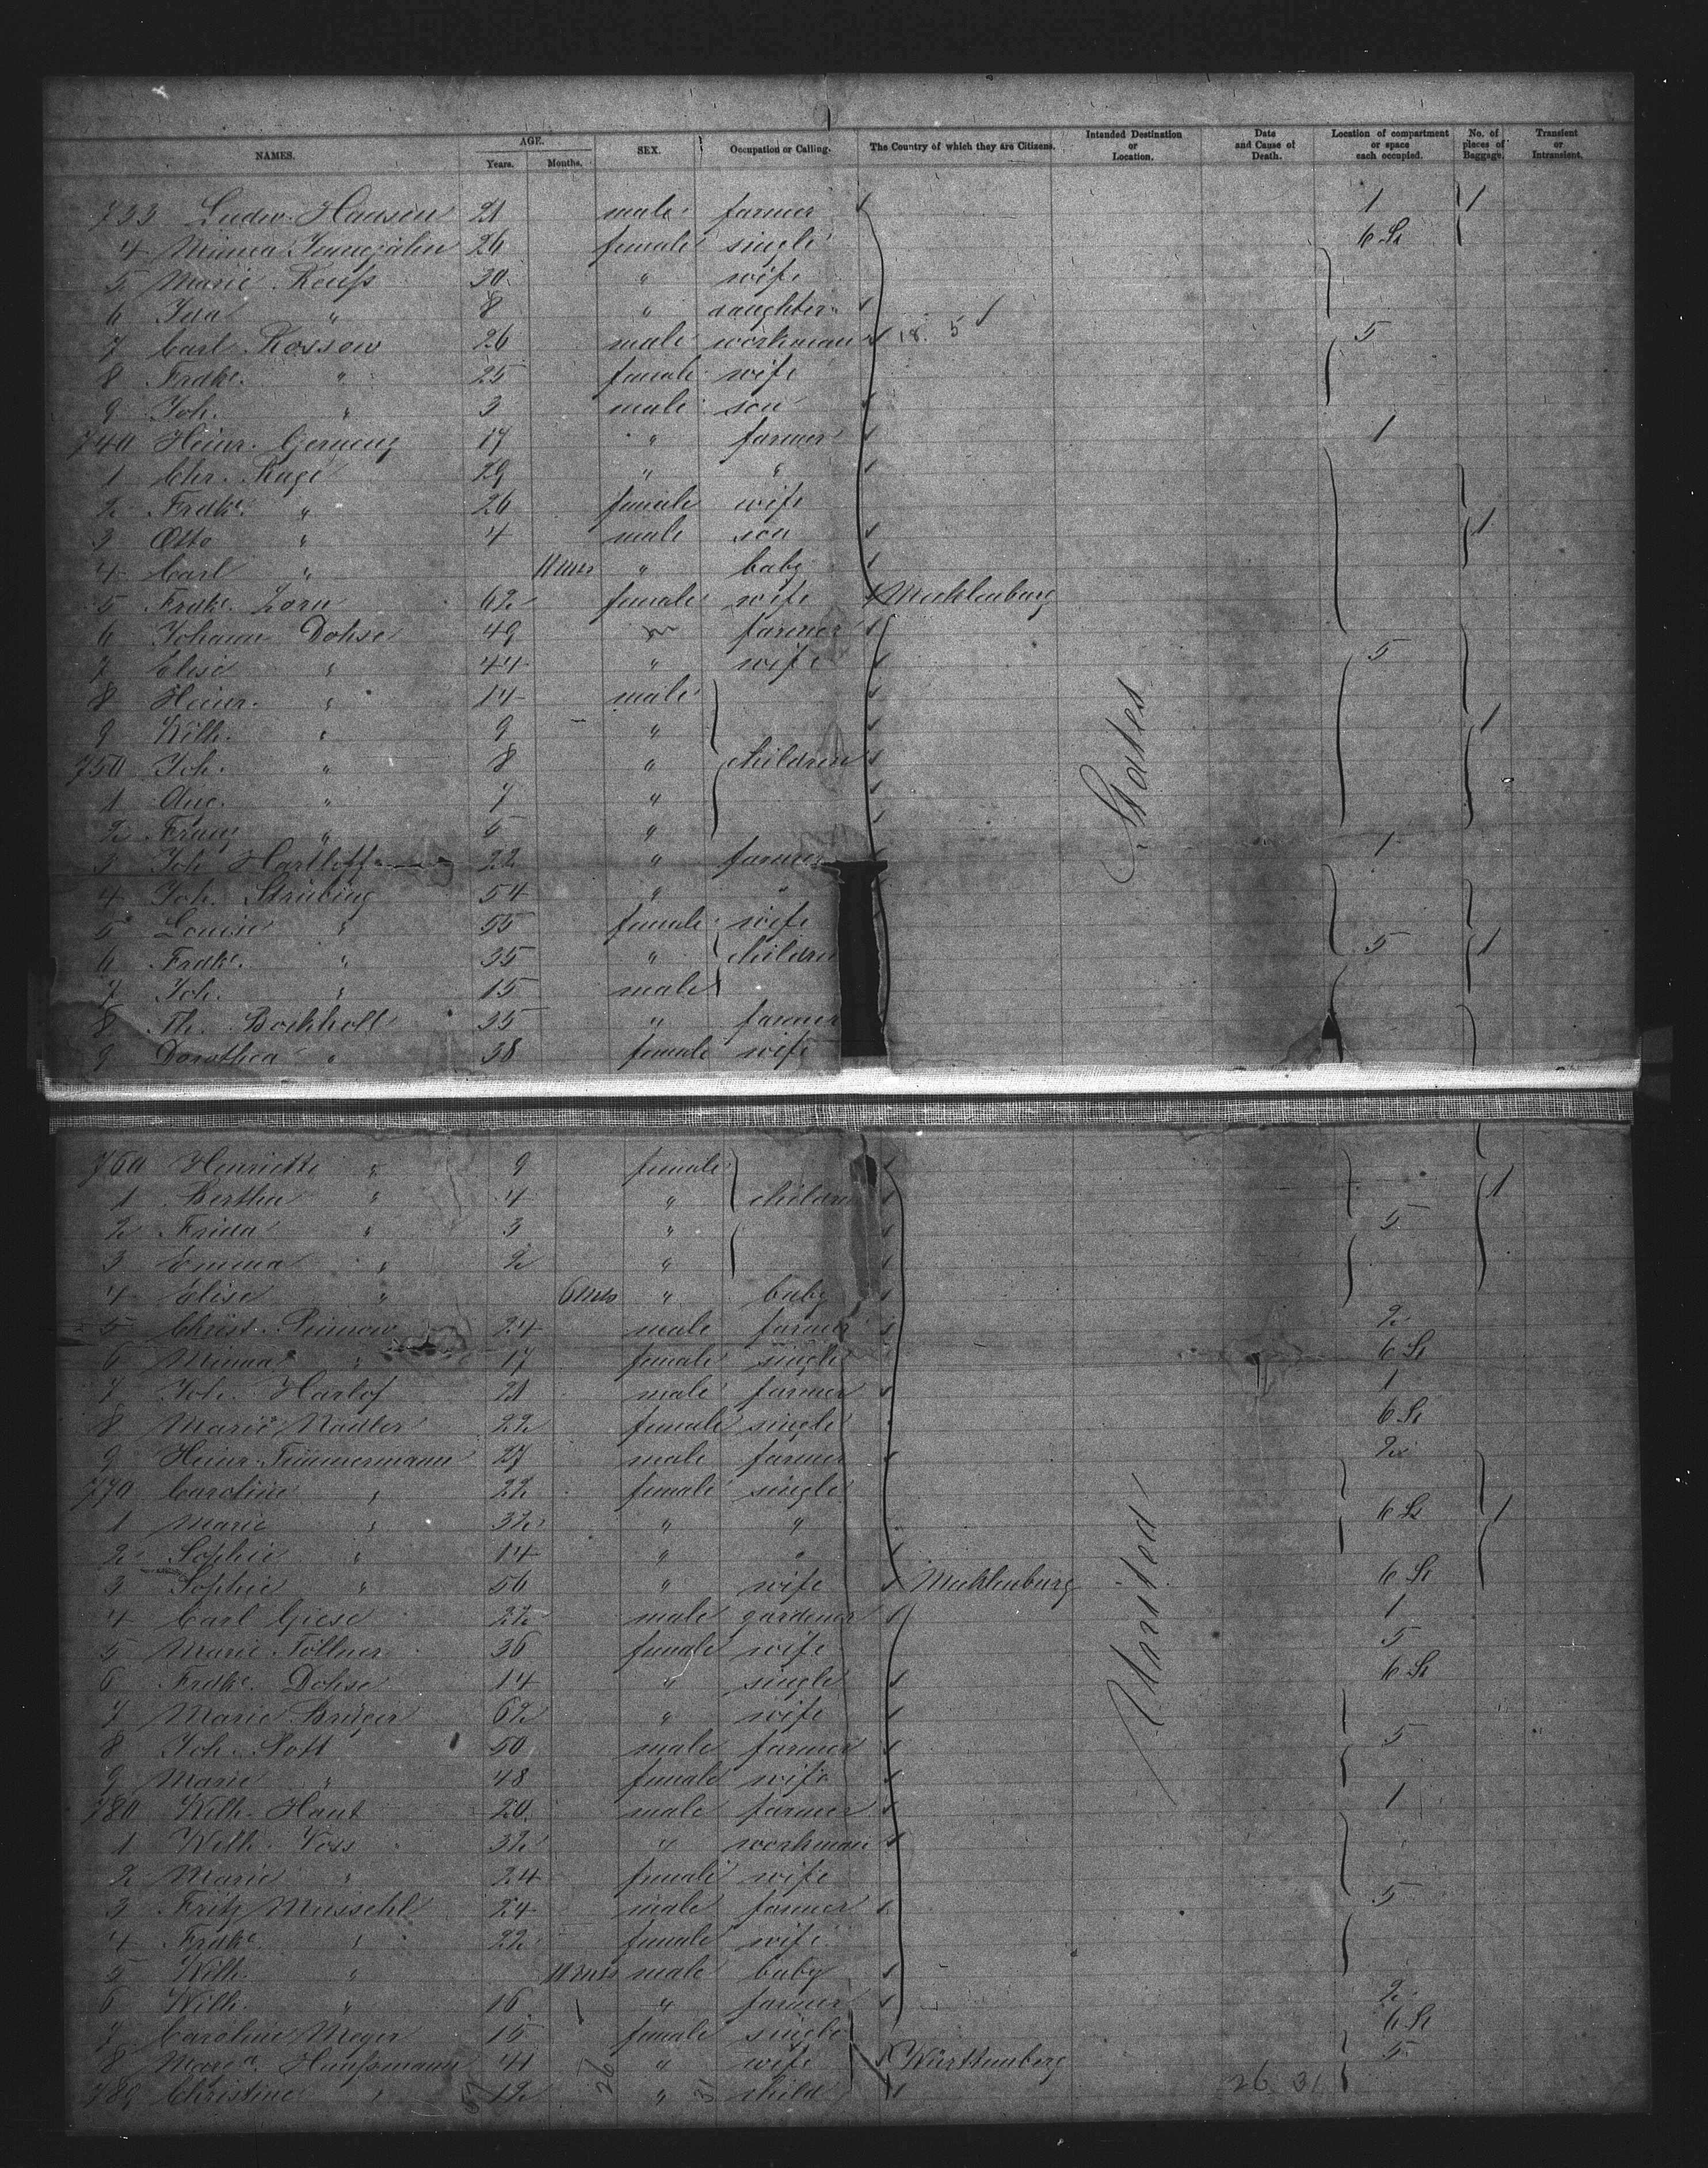 NAMES. AGE. Years. Months. SEX. Occupation or Calling. The Country of which they are Citizens. Intended Destination or Location. Date and Cause of Death. Location of compartment or space each occupied. No. of pieces of Baggage. Transient or Intransient.
733 Ludw. Hansen 21 male farmer 1 1
4 Minna 26 female single 6 St
5 Marie Reuss 30 " wife
6 Ida " 8 " daughter
7 Carl Rossow 26 male workman 18. 5 5
8 Fredke. " 25 female wife
9 Joh. " 3 male son
740 Heinr. 17 " farmer 1
1 Chr. Ruge 29 " "
2 Fredke. " 26 female wife
3 Otto " 4 male son 1
4 Carl " 11 mos " baby
5 Fredke. Zorn 62 female wife Mecklenburg
6 Johann Dohse 49 farmer
7 Elise " 44 " wife 5
8 Heinr. " 14 male
9 Wilh. " 9 " 1
750 Joh. " 8 " children
1 Aug. " 7 "
2 Franz " 5 "
3 Joh. Hartloff 22 " farmer 1
4 Joh. Strübing 54 " "
5 Louise " 55 female wife
6 Fredke. " 35 " children 5 1
7 Joh. " 15 male
8 Th. Bockholt 35 " farmer
9 Dorothea " 38 female wife
States
760 Henriette " 9 female
1 Bertha " 4 " children 1
2 Frida " 3 " 5
3 Emma " 2 "
4 Elise " 6 mos " baby
5 Christ. 24 male farmer 2
6 Minna " 17 female single 6 St
7 Joh. Harlof 21 male farmer 1
8 Marie Nadler 22 female single 6 St
9 Heinr. Timmermann 27 male farmer 2
770 Caroline " 22 female single
1 Marie " 32 " " 6 St 1
2 Sophie " 14 " "
3 Sophie " 56 " wife Mecklenburg 6 St
4 Carl Giese 22 male gardener 1
5 Marie Töllner 36 female wife 5
6 Fredke. Dohse 14 " single 6 St
7 Marie Brüger 62 " wife
8 Joh. Pott 50 male farmer 5
9 Marie " 48 female wife
780 Wilh. Haut 20 male farmer 1
1 Wilh. Voss 32 " workman
2 Marie " 24 female wife
3 Fritz Muschehl 24 male farmer 5
4 Fredke. " 22 female wife
5 Wilh. " 11 mos male baby
6 Wilh. " 16 " farmer 2
7 Caroline Meyer 15 female single 6 St
8 Maria 41 " wife Württemberg 5
789 Christine " 12 " child
United
26 31 26 31